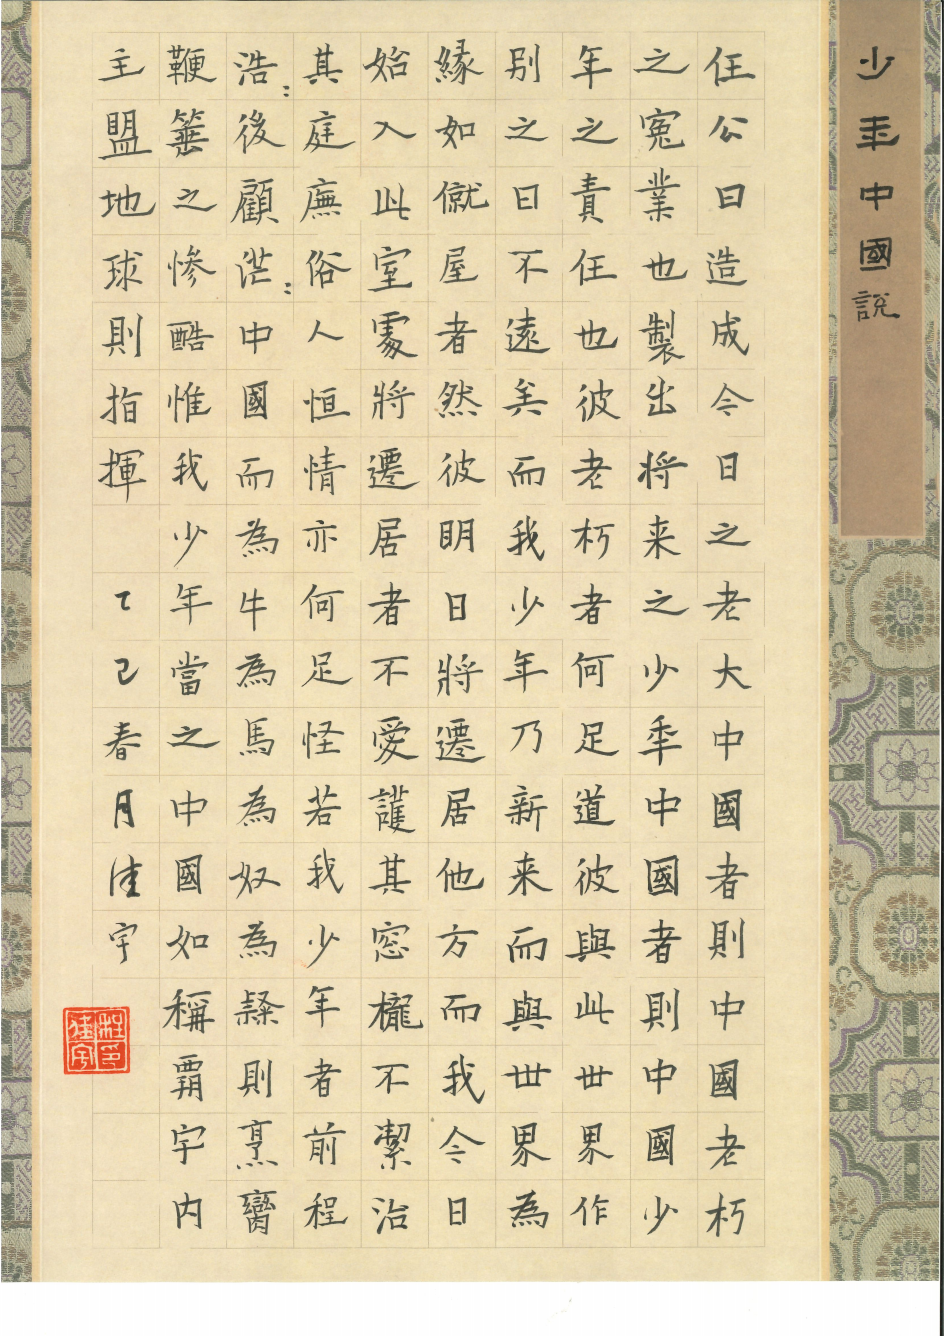 少年中國說
任公曰造成今日之老大中國者則中國老朽
之冤業也製出将来之少年中國者則中國少
年之責任也彼老朽者何足道彼與此世界作
别之日不遠矣而我少年乃新来而與世界為
緣如僦屋者然彼明日將遷居他方而我今日
始入此室處將遷居者不愛護其窓櫳不潔治
其庭廡俗人恒情亦何足怪若我少年者前程
浩:後顧茫:中國而為牛為馬為奴為隸則烹臠
鞭箠之慘酷惟我少年當之中國如稱霸宇内
主盟地球則指揮 乙巳春月佳宇
程印佳宇